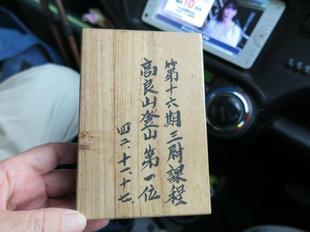 第十六期三尉課程
高良山登山第一位
四二、十一、十七